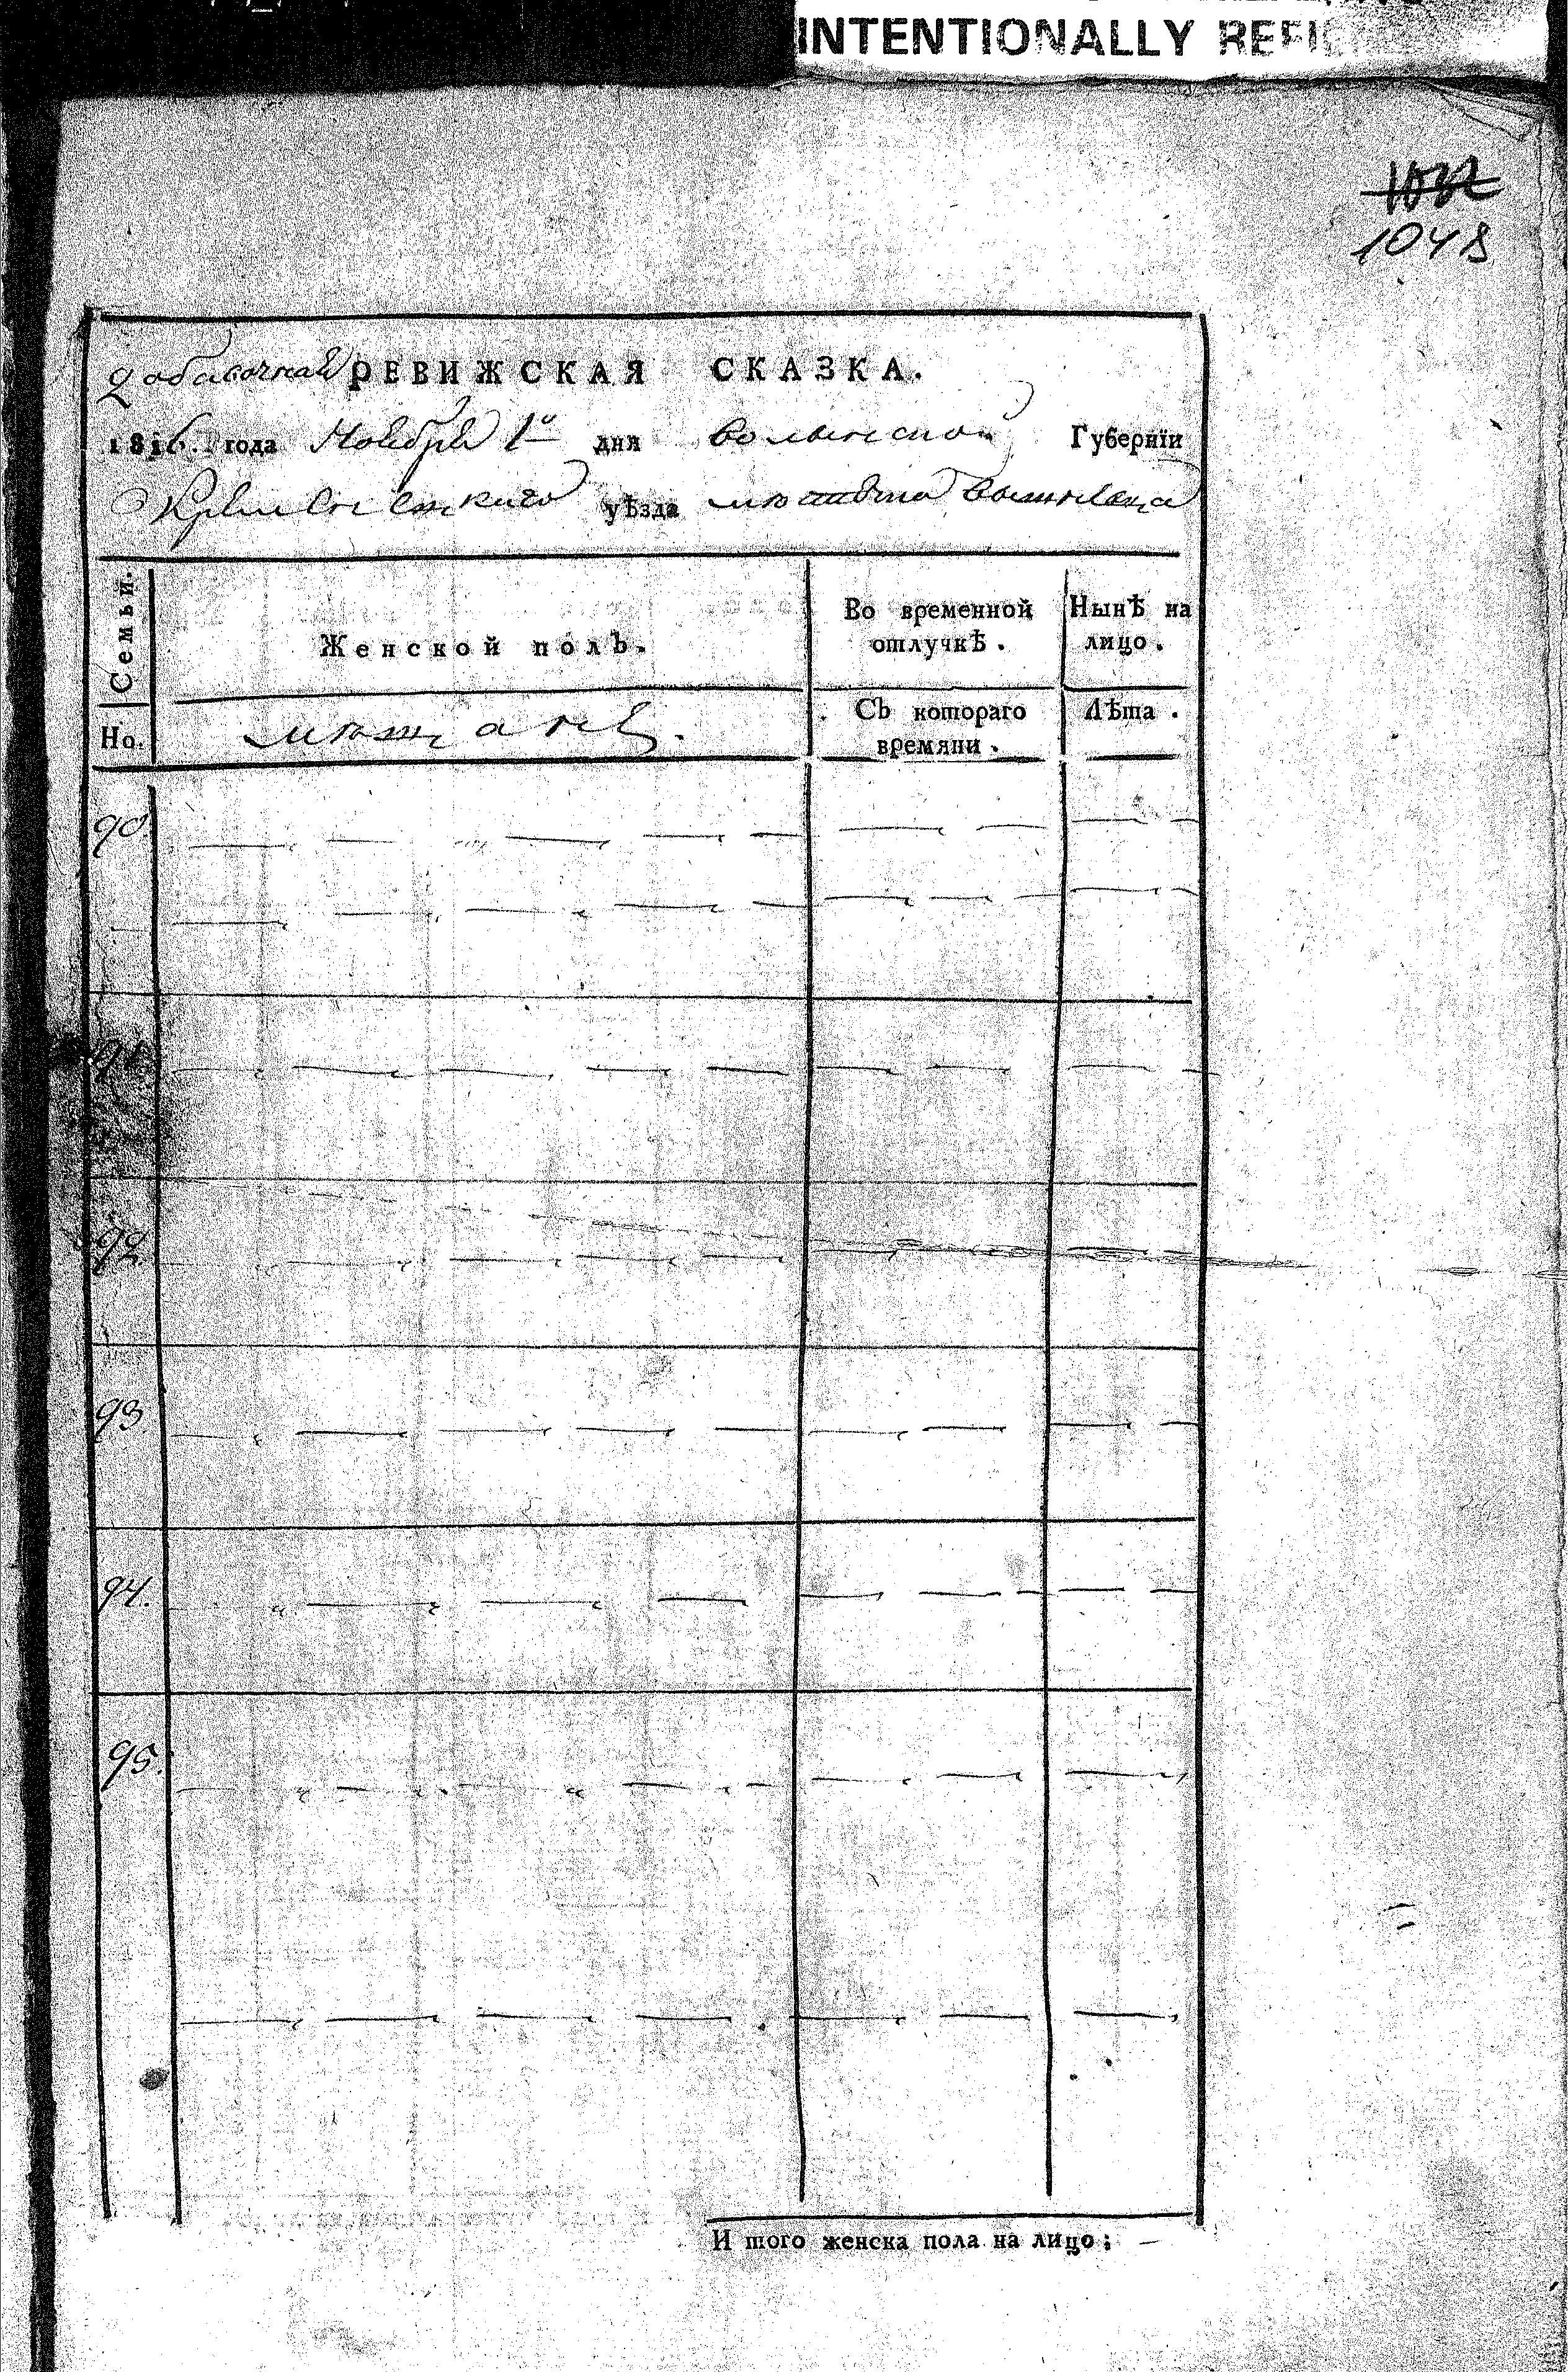 INTENTIONALLY REFI
1048
добавочная РЕВИЖСКАЯ СКАЗКА.
1816. года Ноября 1го дня волынской Губернїи
Кременецкаго уѣзда местечка
Семьи.
Женской полъ.
Во временной отлучкѣ.
Нынѣ на лицо.
Но.
мещане.
Съ котораго времяни.
Лѣта.
90
91
92
93.
94.
95.
И того женска пола на лицо; —